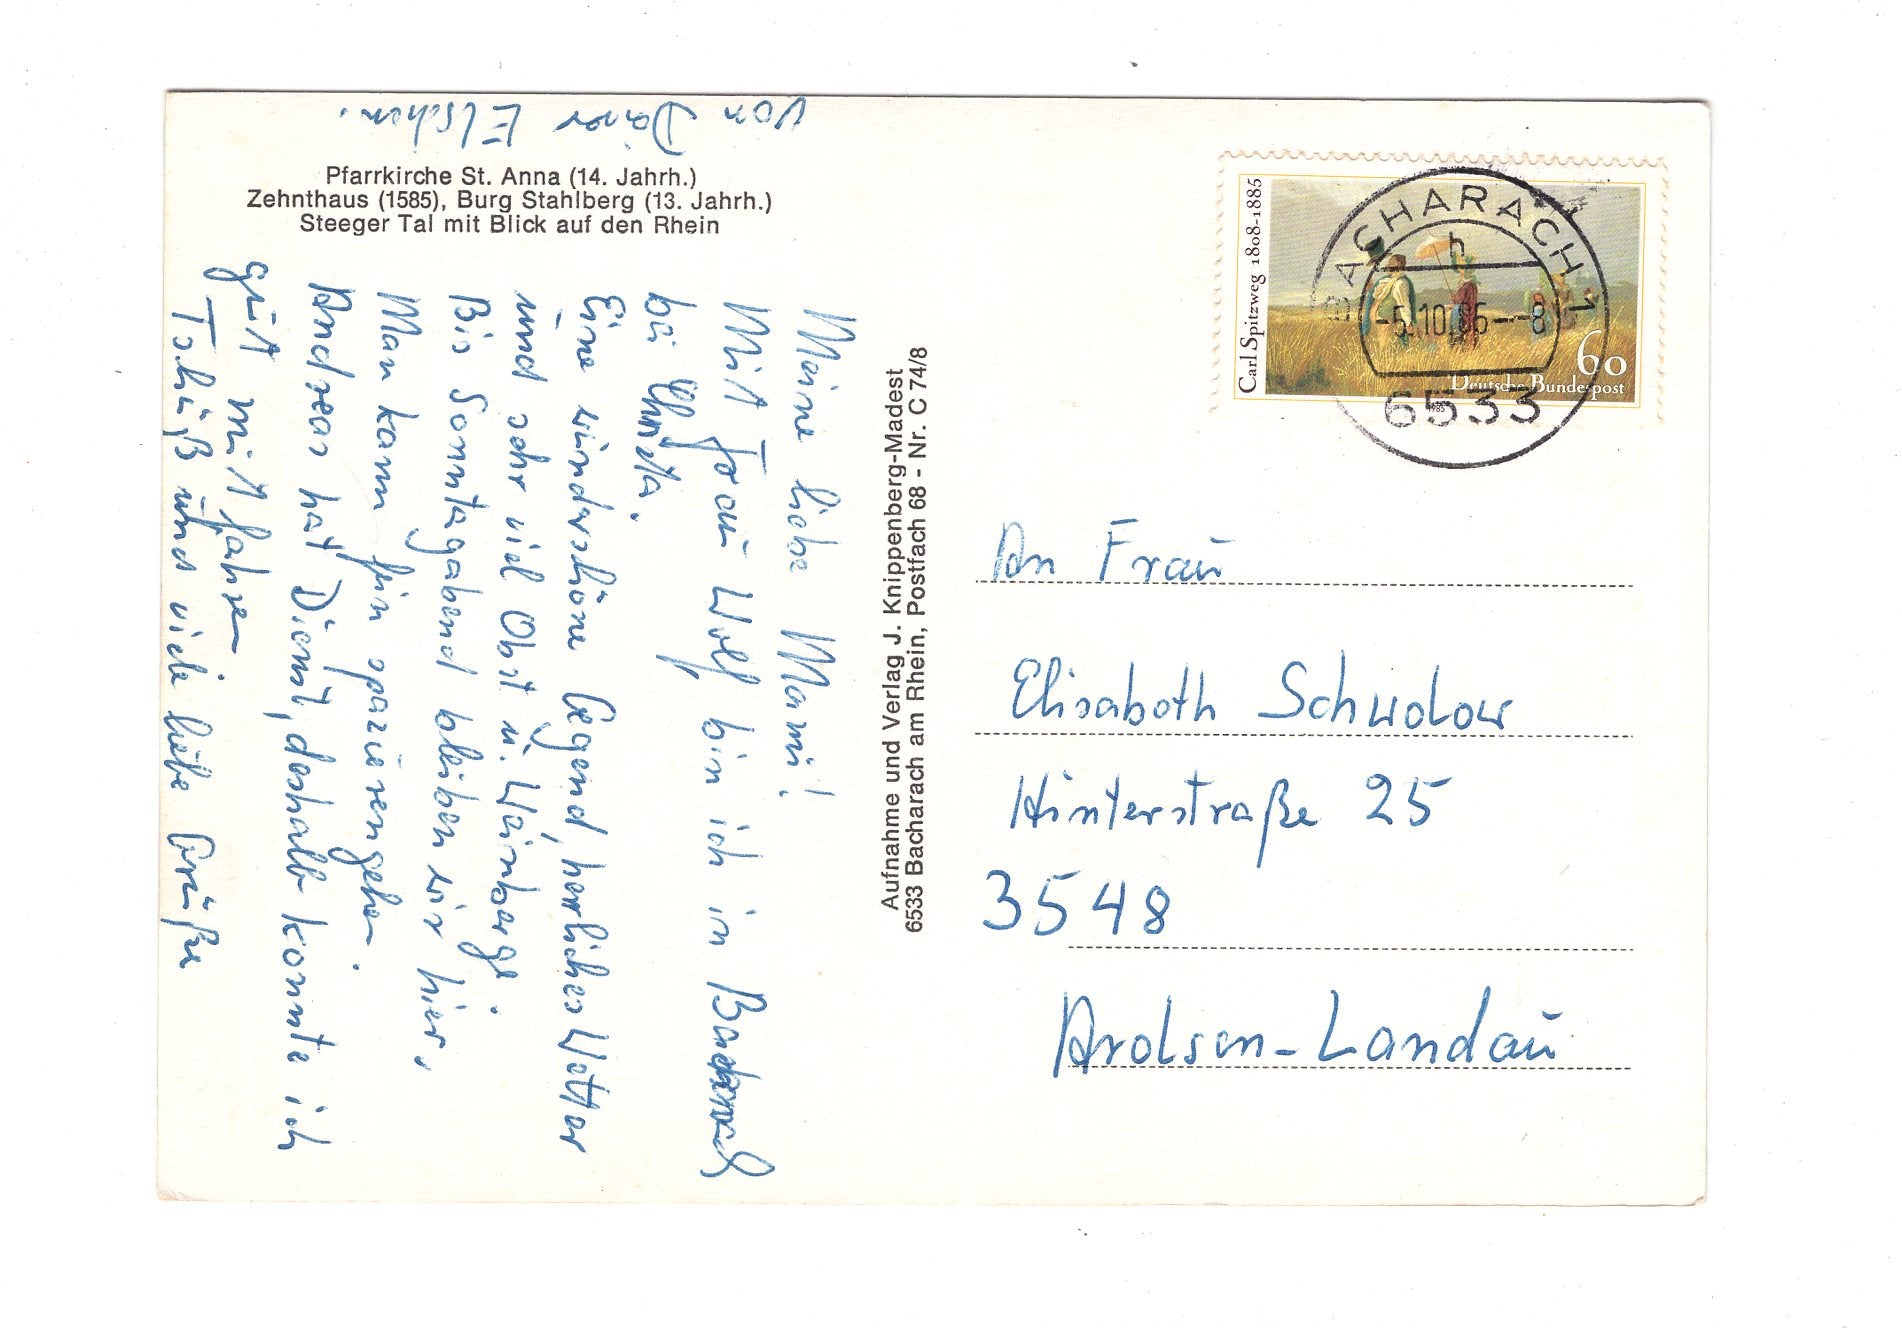 Pfarrkirche St. Anna (14. Jahrh.)
Zehnthaus (1585), Burg Stahlberg (13. Jahrh.)
Steeger Tal mit Blick auf den Rhein
Meine liebe Mami!
Mit Frau Wolf bin ich in Bacharach
bei Christa.
Eine wunderschöne Gegend, herrliches Wetter
und sehr viel Obst u. Weinberge.
Bis Sonntagabend bleiben wir hier,
Man kann fein spazierengehen.
Andreas hat Dienst, deshalb konnte ich
gut mitfahren
Tschüß und viele liebe Grüße
von Deiner Elschen.
Aufnahme und Verlag J. Knippenberg-Madest
6533 Bacharach am Rhein, Postfach 68 - Nr. C 74/8
Carl Spitzweg 1808-1885
60
Deutsche Bundespost
1985
BACHARACH 1
h
-5.10.85--8
6533
An Frau
Elisabeth Schudlow
Hinterstraße 25
3548
Arolsen-Landau